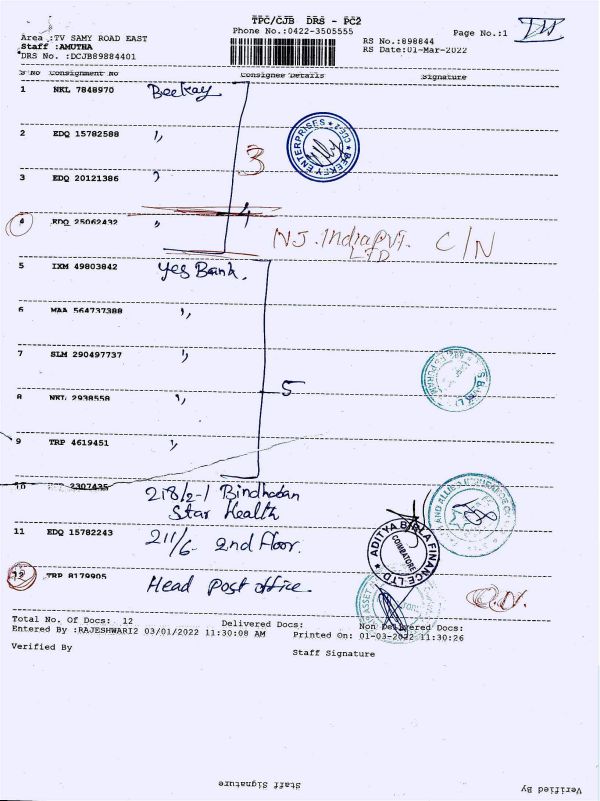 TPC/CJB DRS - PC2
Phone No.:0422-3505555
Page No.:1
Area :TV SAMY ROAD EAST
Staff :AMUTHA
DRS No. :DCJB89884401
RS No.:898844
RS Date:01-Mar-2022
S No Consignment No Consignee Details Signature
1 NKL 7848970 Beekay
2 EDQ 15782588 "
3 EDQ 20121386 "
3
BEEKEY ENTERPRISES
4 EDQ 25062432 "
4
NJ. India Pvt. C/N
LTD
5 IXM 49803842 Yes Bank.
6 MAA 564737388 "
7 SLM 290497737 "
8 NKL 2938558 "
5
9 TRP 4619451 "
10 2307435 218/2-1 Bindhaban
Star Health
11 EDQ 15782243 211/6- 2nd Floor.
ADITYA BIRLA FINANCE LTD
COIMBATORE
12 TRP 8179905 Head Post office.
Total No. Of Docs: 12 Delivered Docs: Non Delivered Docs:
Entered By :RAJESHWARI2 03/01/2022 11:30:08 AM Printed On: 01-03-2022 11:30:26
Verified By Staff Signature
Staff Signature Verified By